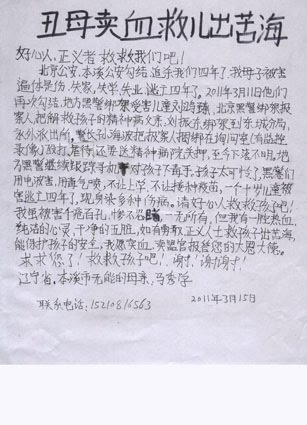 丑母卖血救儿出苦海
好心人、正义者 救救我们吧！
北京公安、本溪公安勾结、追杀我们四年了、我母子被害
遍体是伤、失家、失学、失业、逃亡四年了。2011年3月11日他们
再次勾结、地方黑警绑架受害儿童刘鸿臻、北京黑警绑架报
案人把解救孩子的精神病父亲、刘振东、绑架到东城分局、
永外派出所、警长孙海波把报案人捆绑在询问室(有监控
录像)敌打、虐待、还要送精神病院关押、至今下落不明、地
方黑警继续跟踪寻如 对孩子下毒手、孩子太可怜了、黑警们
用电波害、用毒气喷、不让上学、不让接种疫苗、一个十岁儿童被
害逃亡四年了、现身染多种伤病。请好心人救救孩子吧！
我虽被害千疮百孔、惨不忍睹、一无所有、但我有一腔热血、
纯洁的心灵、干净的五脏、如有勇敢正义人士救孩子出苦海、
能保护孩子的安全、我愿卖血、卖器官报答您的大恩大德。
求求您了！救救孩子吧！谢！谢！谢！
辽宁省、本溪市无能的母亲、马秀学
联系电话：15210816563
2011年3月15日